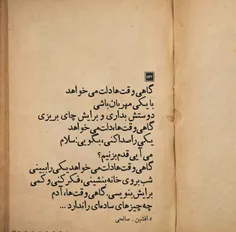 گاهی وقت‌ها دلت می‌خواهد
با یکی مهربان باشی
دوستش بداری و برایش چای بریزی
گاهی وقت‌ها، دلت می‌خواهد
یکی را صدا کنی، بگویی: سلام
می‌آیی قدم بزنیم؟
گاهی وقت‌ها دلت می‌خواهد یکی را ببینی
شب بروی خانه بنشینی، فکر کنی و کمی
برایش بنویسی. گاهی وقت‌ها، آدم
چه چیزهای ساده‌ای را ندارد ...
افشین . صالحی